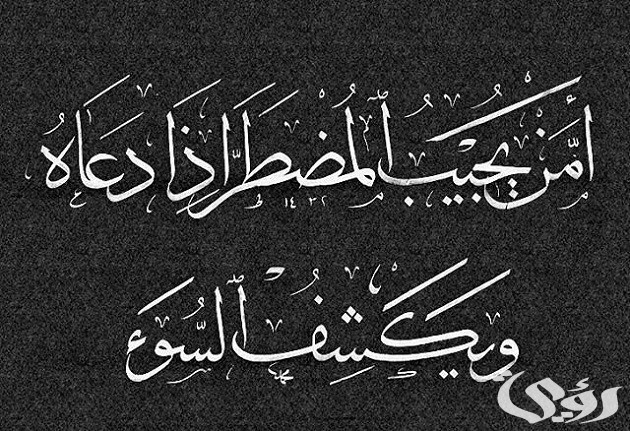 أَمَّنْ يُجِيبُ ٱلْمُضْطَرَّ إِذَا دَعَاهُ
وَيَكْشِفُ ٱلسُّوءَ
رؤية